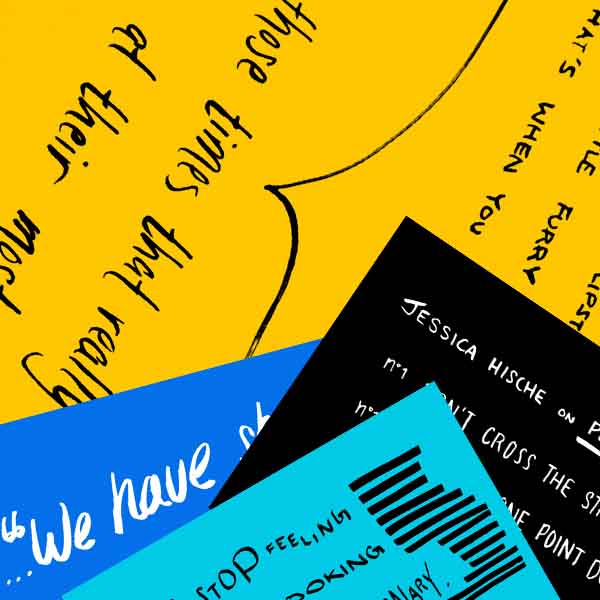 those times that really
at their most
THAT'S WHEN YOU
FURRY
LIPST
JESSICA HISCHE ON
nº1 DON'T CROSS THE ST
nº
ONE POINT D
"We have st
...
STOP FEELING
OOKING
NARY.